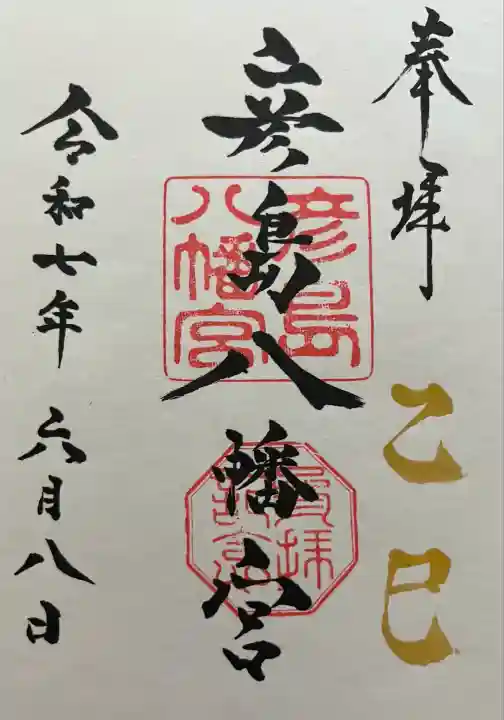 奉拝
乙巳
彦島八幡宮
彦島
八幡宮
令和七年六月八日